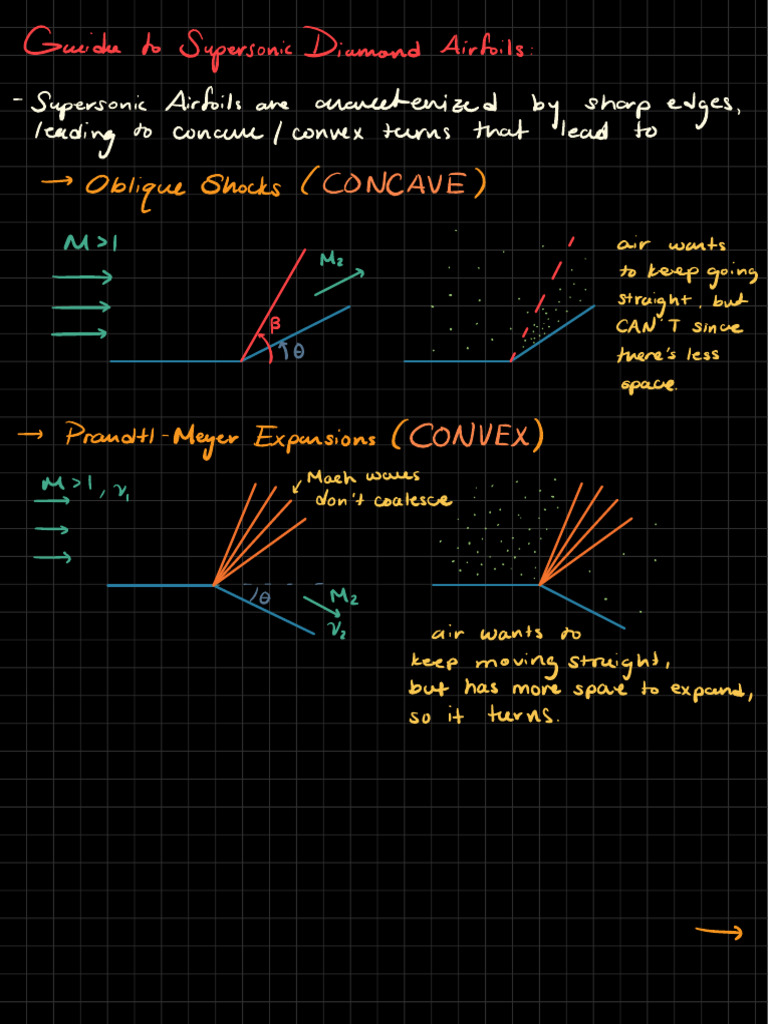 Guide to Supersonic Diamond Airfoils:
- Supersonic Airfoils are characterized by sharp edges,
leading to concave/convex turns that lead to
→ Oblique Shocks (CONCAVE)
M>1
M₂
β
θ
air wants
to keep going
straight, but
CAN'T since
there's less
space.
→ Prandtl-Meyer Expansions (CONVEX)
M>1, ν₁
Mach waves
don't coalesce
θ
M₂
ν₂
air wants to
keep moving straight,
but has more space to expand,
so it turns.
→